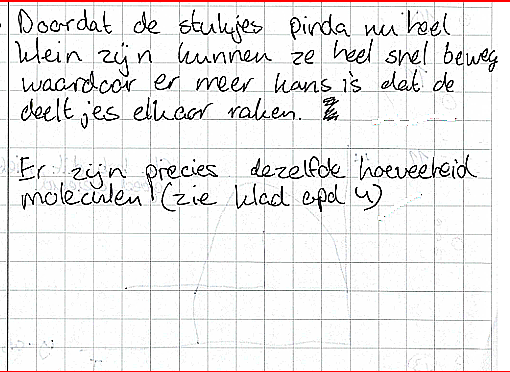 Doordat de stukjes pinda nu heel
klein zijn kunnen ze heel snel beweg
waardoor er meer kans is dat de
deeltjes elkaar raken.
Er zijn precies dezelfde hoeveelheid
moleculen (zie klad opd 4)